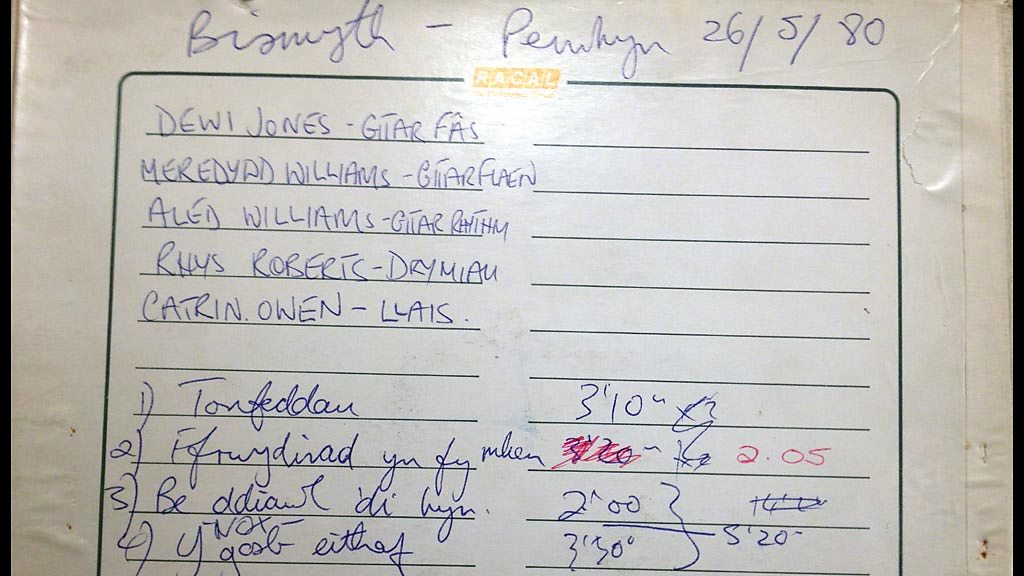 Bismyth - Penrhyn 26/5/80
RACAL
DEWI JONES - GITAR FÂS
MEREDYDD WILLIAMS - GITAR FLAEN
ALED WILLIAMS - GITAR RHITHM
RHYS ROBERTS - DRYMIAU
CATRIN. OWEN - LLAIS.
1) Tonfeddau 3'10"
2) Ffrwydriad yn fy mhen 2.05
3) Be ddiawl 'di hyn. 2'00
4) Y NOS eithaf 3'30" 5'20"